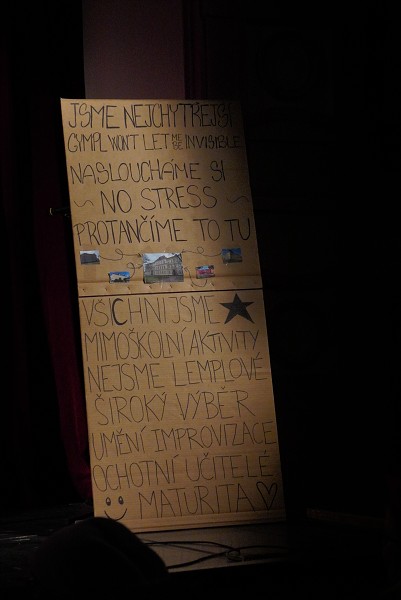 JSME NEJCHYTŘEJŠÍ
GYMPL WON'T LET ME BE INVISIBLE
NASLOUCHÁME SI
~ NO STRESS ~
PROTANČÍME TO TU
VŠICHNI JSME ★
MIMOŠKOLNÍ AKTIVITY
NEJSME LEMPLOVÉ
ŠIROKÝ VÝBĚR
UMĚNÍ IMPROVIZACE
OCHOTNÍ UČITELÉ
MATURITA